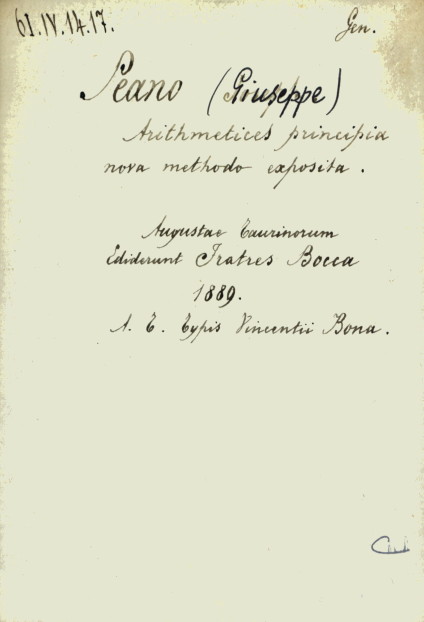 61.IV.14.17. Gen.
Peano (Giuseppe)
Arithmetices principia
nova methodo exposita.
Augustae Taurinorum
Ediderunt Fratres Bocca
1889.
A. T. Typis Vincentii Bona.